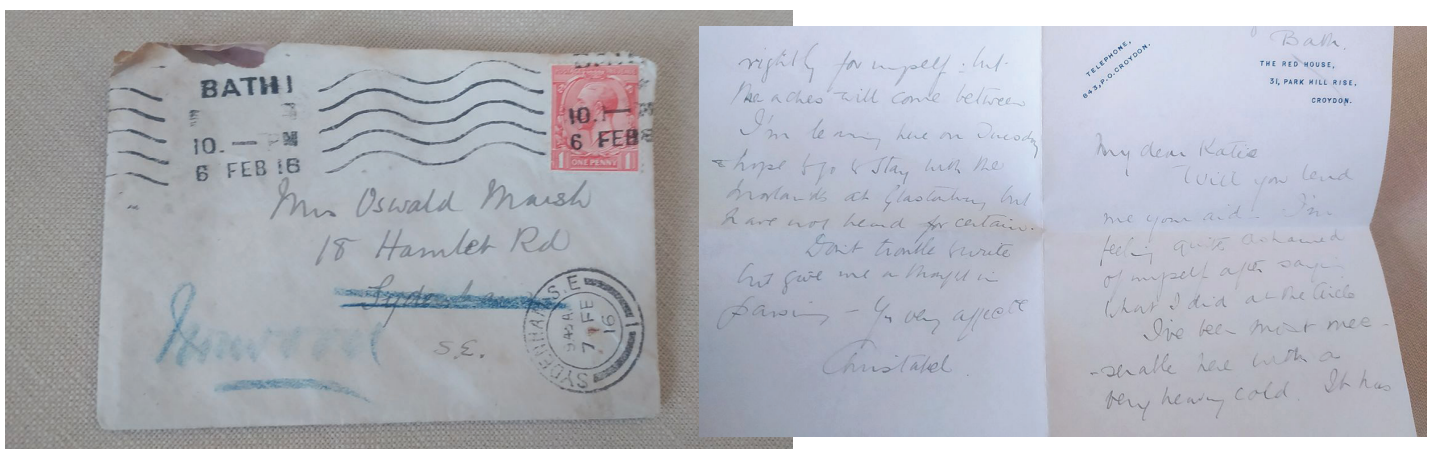 BATH
10. — PM
6 FEB 16
10.
6 FEB
ONE PENNY
1 1
Mrs Oswald Marsh
18 Hamlet Rd
Sydenham
Norwood
S.E.
SYDENHAM S.E
7 FE
16
1
rightly for myself: but
the aches will come between
I'm leaving here on Tuesday
& hope to go & stay with the
Morlands at Glastonbury but
have not heard for certain.
Don't trouble to write
but give me a thought in
passing — Yr very affecte
Christabel.
TELEPHONE,
843, P.O. CROYDON.
Bath.
THE RED HOUSE,
31, PARK HILL RISE,
CROYDON.
My dear Katie
Will you lend
me your aid. I'm
feeling quite ashamed
of myself after saying
what I did at the Circle
I've been most mee-
-serable here with a
very heavy cold. It has